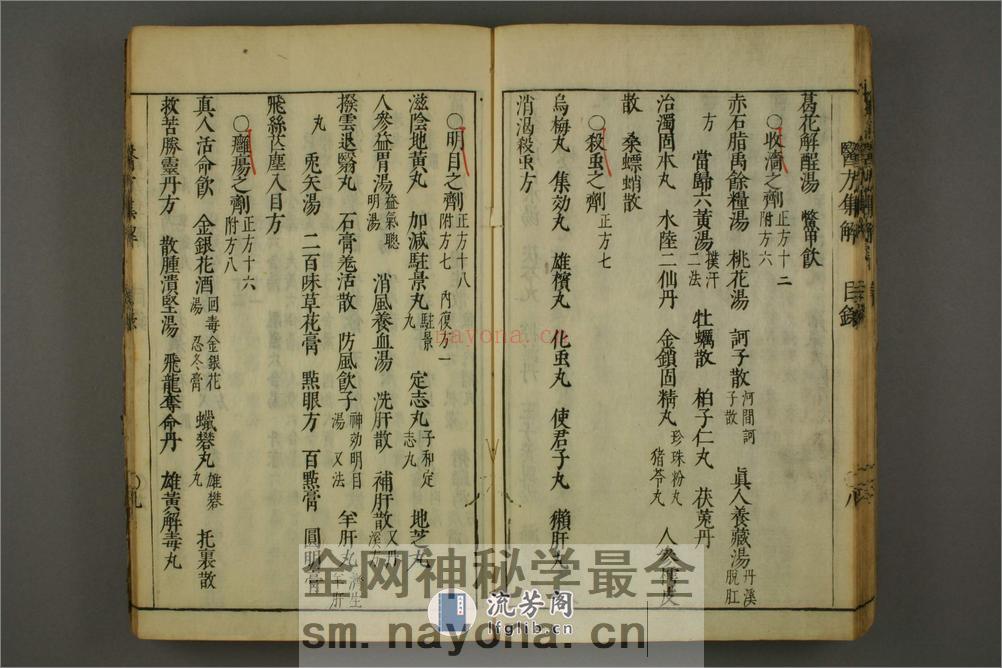 葛花解酲湯　鱉甲飲
○收濇之劑 正方十二 附方六
赤石脂禹餘糧湯　桃花湯　訶子散 河間訶子散　眞人養藏湯 丹溪脫肛
方　當歸六黃湯 撲汗法　牡蠣散　柏子仁丸　茯菟丹
治濁固本丸　水陸二仙丹　金鎖固精丸 珍珠粉丸 猪苓丸　人參樗皮
散　桑螵蛸散
○殺虫之劑 正方七
烏梅丸　集効丸　雄檳丸　化虫丸　使君子丸　獺肝丸
消渴殺虫方
醫方集解　目錄　八
○明目之劑 正方十八 附方七 內復一
滋陰地黃丸　加減駐景丸 駐景丸　定志丸 子和定志丸　地芝丸
人參益胃湯 益氣聰明湯　消風養血湯　洗肝散　補肝散 又丹溪方
撥雲退翳丸　石膏羗活散　防風飲子 神効明目湯 又法　羊肝丸 濟生羊肝
丸　兎矢湯　二百味草花膏　點眼方　百點膏　圓明膏
飛絲芒塵入目方
○癰瘍之劑 正方十六 附方八
真人活命飲　金銀花酒 回毒金銀花湯 忍冬膏　蠟礬丸 雄礬丸　托裏散
救苦勝靈丹方　散腫潰堅湯　飛龍奪命丹　雄黃解毒丸
九
nayona.cn
全网神秘学最全
流芳阁
lfglib.cn
sm.nayona.cn